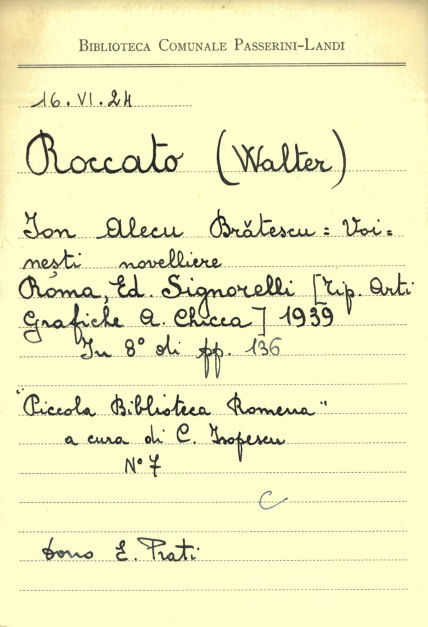 BIBLIOTECA COMUNALE PASSERINI-LANDI
16.VI.24
Roccato (Walter)
Ion Alecu Brătescu=Voi=
nești novelliere
Roma, Ed. Signorelli [Tip. Arti
Grafiche A. Chicca] 1939
In 8° di pp. 136
"Piccola Biblioteca Romena"
a cura di C. Isopescu
N° 7
C
dono E. Prati